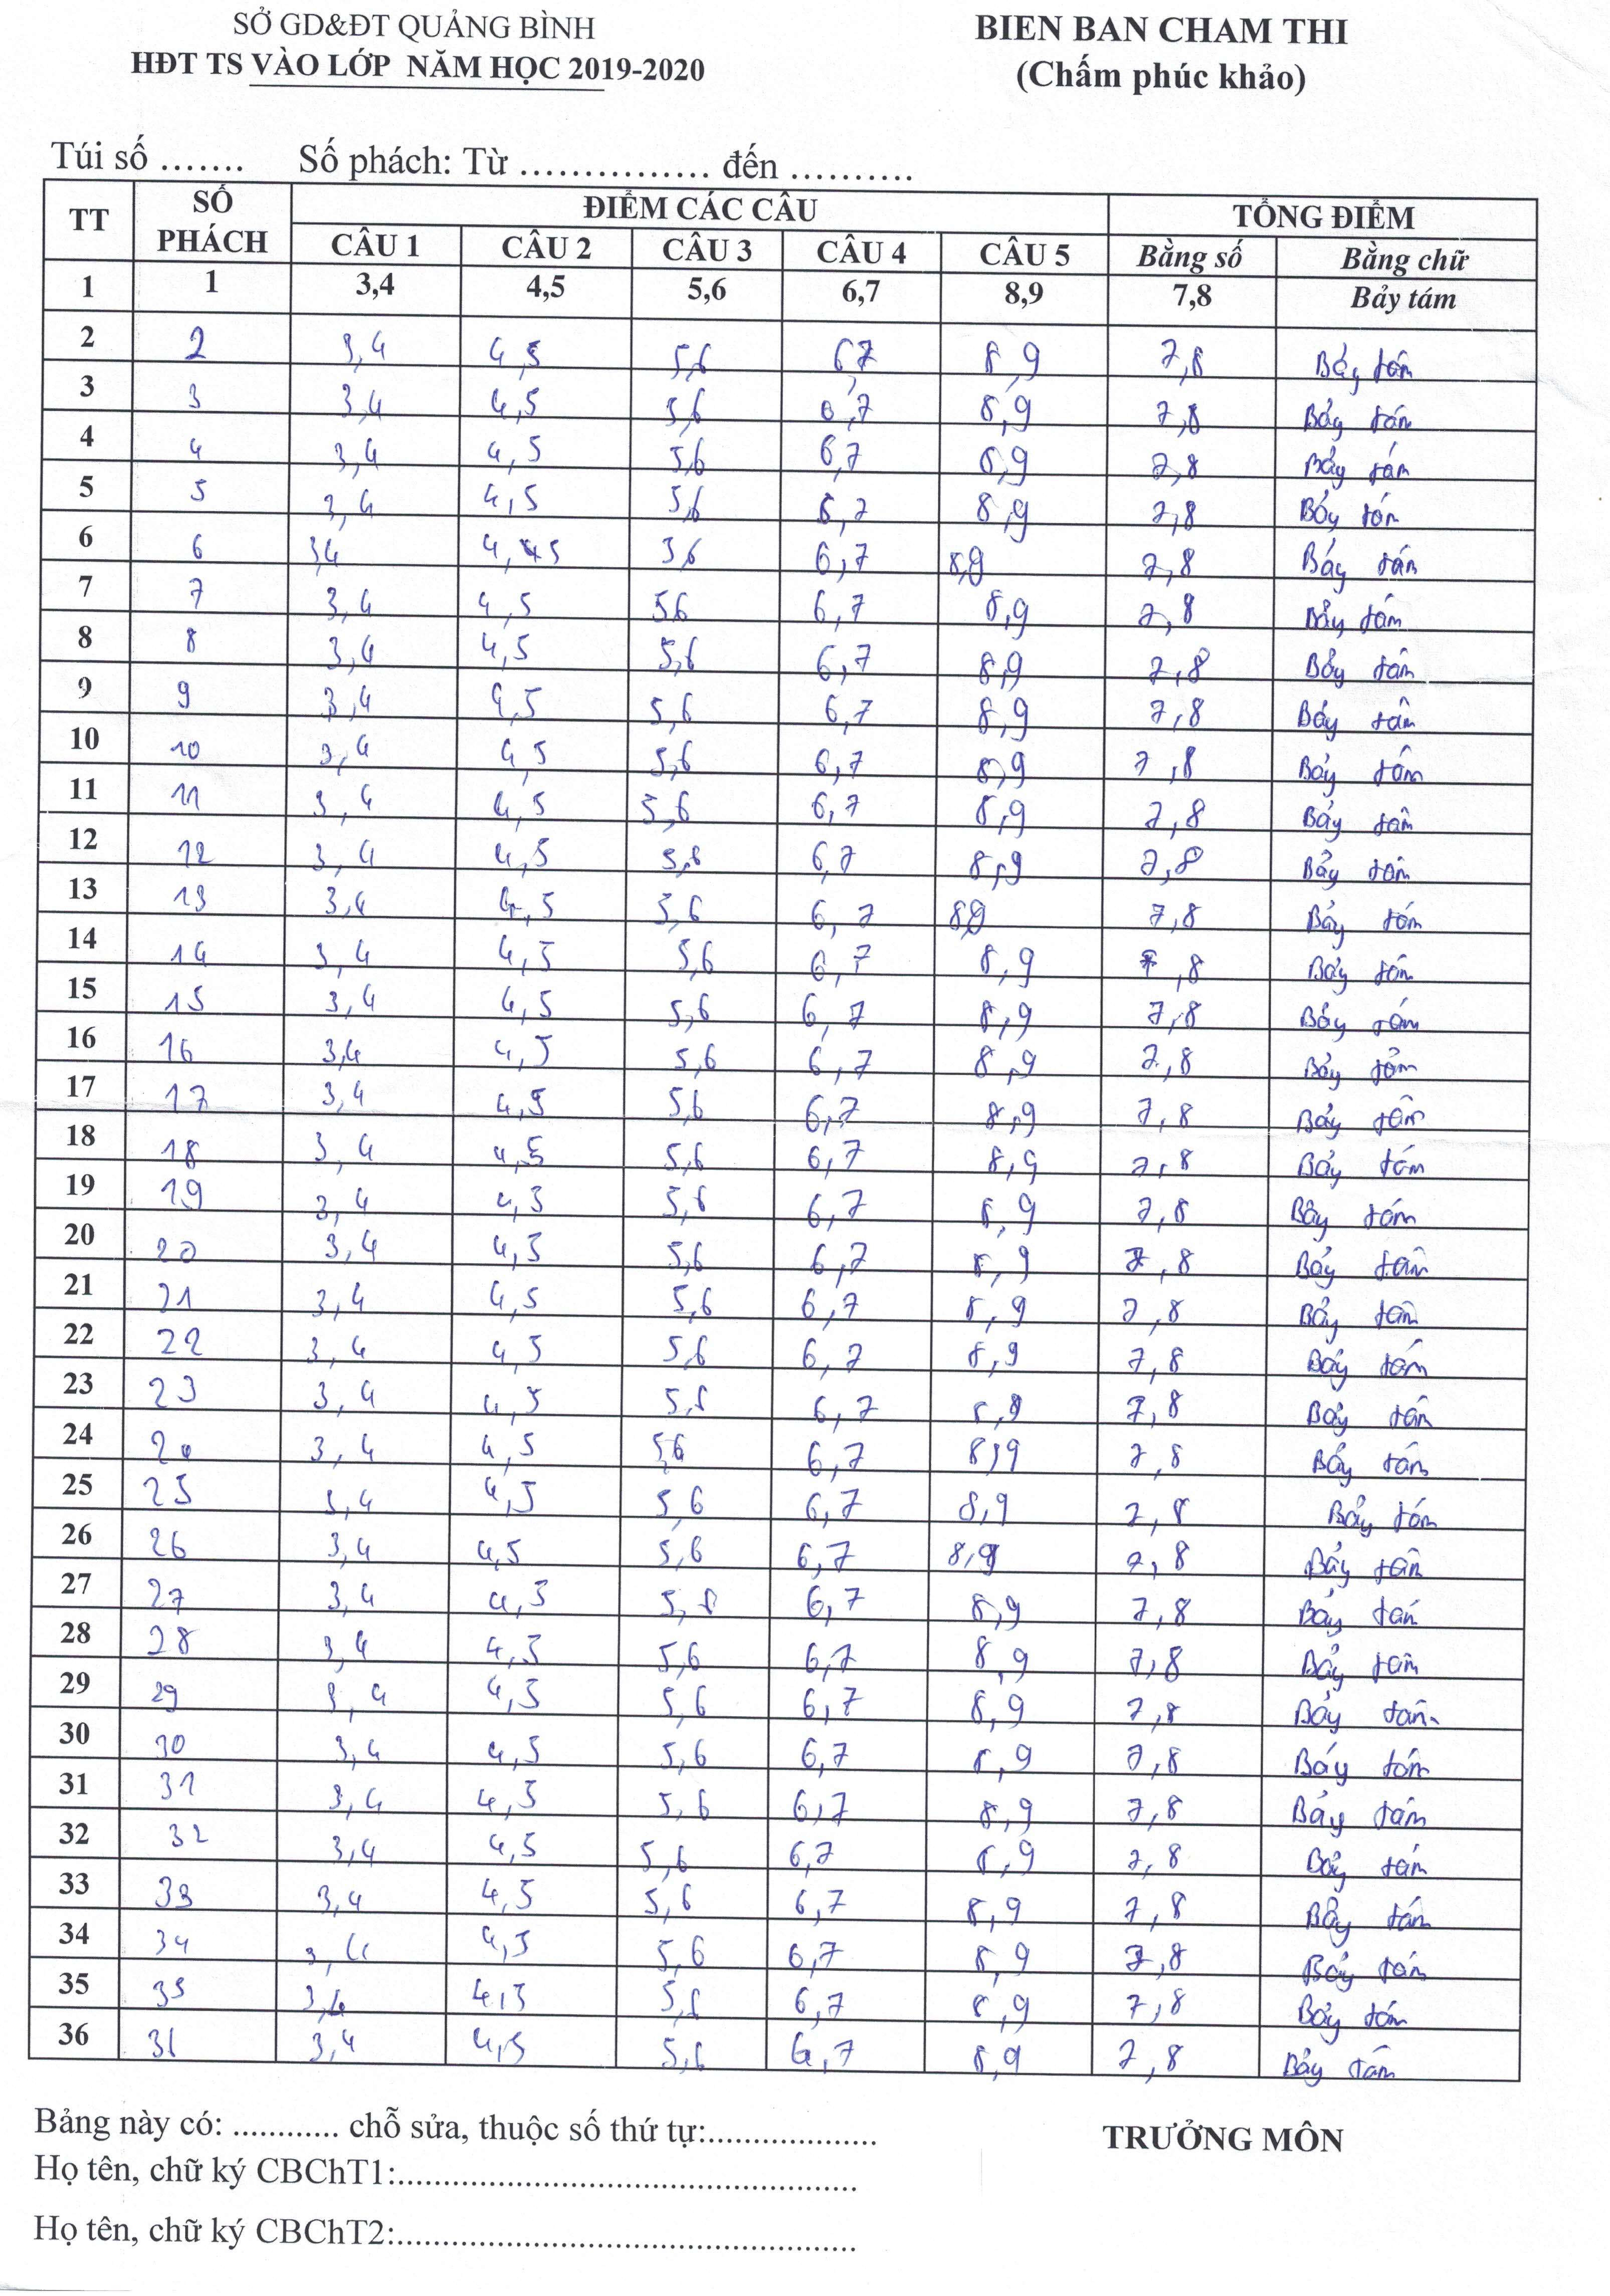 SỞ GD&ĐT QUẢNG BÌNH
HĐT TS VÀO LỚP NĂM HỌC 2019-2020
BIEN BAN CHAM THI
(Chấm phúc khảo)
Túi số ....... Số phách: Từ ............... đến ..........
TT SỐ PHÁCH ĐIỂM CÁC CÂU TỔNG ĐIỂM
CÂU 1 CÂU 2 CÂU 3 CÂU 4 CÂU 5 Bằng số Bằng chữ
1 1 3,4 4,5 5,6 6,7 8,9 7,8 Bảy tám
2 2 3,4 4,5 5,6 6,7 8,9 7,8 Bảy tám
3 3 3,4 4,5 5,6 6,7 8,9 7,8 Bảy tám
4 4 3,4 4,5 5,6 6,7 8,9 7,8 Bảy tám
5 5 3,4 4,5 5,6 6,7 8,9 7,8 Bảy tám
6 6 3,4 4,5 3,6 6,7 8,9 7,8 Bảy tám
7 7 3,4 4,5 5,6 6,7 8,9 7,8 Bảy tám
8 8 3,4 4,5 5,6 6,7 8,9 7,8 Bảy tám
9 9 3,4 4,5 5,6 6,7 8,9 7,8 Bảy tám
10 10 3,4 4,5 5,6 6,7 8,9 7,8 Bảy tám
11 11 3,4 4,5 5,6 6,7 8,9 7,8 Bảy tám
12 12 3,4 4,5 5,6 6,7 8,9 7,8 Bảy tám
13 13 3,4 4,5 5,6 6,7 8,9 7,8 Bảy tám
14 14 3,4 4,5 5,6 6,7 8,9 7,8 Bảy tám
15 15 3,4 4,5 5,6 6,7 8,9 7,8 Bảy tám
16 16 3,4 4,5 5,6 6,7 8,9 7,8 Bảy tám
17 17 3,4 4,5 5,6 6,7 8,9 7,8 Bảy tám
18 18 3,4 4,5 5,6 6,7 8,9 7,8 Bảy tám
19 19 3,4 4,5 5,6 6,7 8,9 7,8 Bảy tám
20 20 3,4 4,5 5,6 6,7 8,9 7,8 Bảy tám
21 21 3,4 4,5 5,6 6,7 8,9 7,8 Bảy tám
22 22 3,4 4,5 5,6 6,7 8,9 7,8 Bảy tám
23 23 3,4 4,5 5,6 6,7 8,9 7,8 Bảy tám
24 24 3,4 4,5 5,6 6,7 8,9 7,8 Bảy tám
25 25 3,4 4,5 5,6 6,7 8,9 7,8 Bảy tám
26 26 3,4 4,5 5,6 6,7 8,9 7,8 Bảy tám
27 27 3,4 4,5 5,6 6,7 8,9 7,8 Bảy tám
28 28 3,4 4,5 5,6 6,7 8,9 7,8 Bảy tám
29 29 3,4 4,5 5,6 6,7 8,9 7,8 Bảy tám
30 30 3,4 4,5 5,6 6,7 8,9 7,8 Bảy tám
31 31 3,4 4,5 5,6 6,7 8,9 7,8 Bảy tám
32 32 3,4 4,5 5,6 6,7 8,9 7,8 Bảy tám
33 33 3,4 4,5 5,6 6,7 8,9 7,8 Bảy tám
34 34 3,4 4,5 5,6 6,7 8,9 7,8 Bảy tám
35 35 3,4 4,5 5,6 6,7 8,9 7,8 Bảy tám
36 36 3,4 4,5 5,6 6,7 8,9 7,8 Bảy tám
Bảng này có: ............ chỗ sửa, thuộc số thứ tự:....................
TRƯỞNG MÔN
Họ tên, chữ ký CBChT1:......................................................
Họ tên, chữ ký CBChT2:......................................................